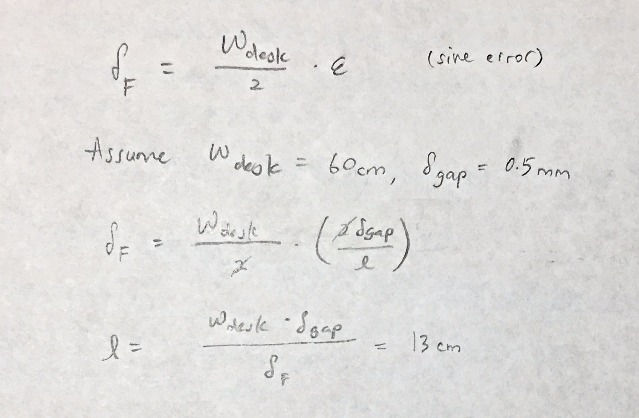 δ_F = W_desk / 2 · ε (sine error)
Assume W_desk = 60cm, δ_gap = 0.5mm
δ_F = W_desk / 2 · (2 δ_gap / l)
l = W_desk · δ_gap / δ_F = 13 cm